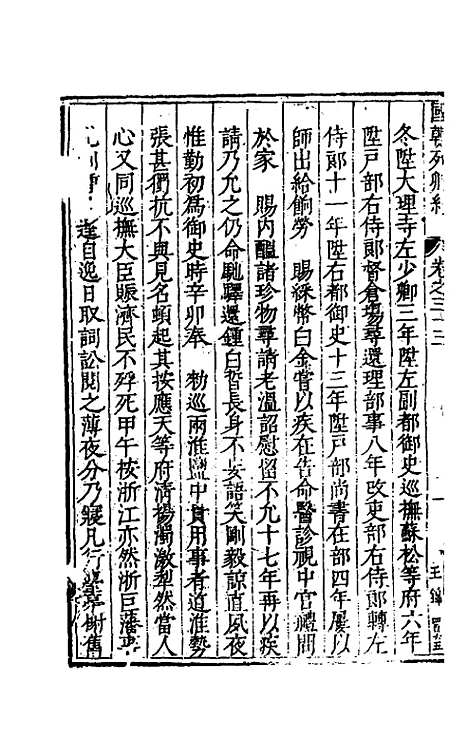 國朝列卿紀 卷之三十三
冬陞大理寺左少卿三年陞左副都御史巡撫蘇松等府六年
陞戶部右侍郎督倉塲尋還理部事八年改吏部右侍郎轉左
侍郎十一年陞右都御史十三年陞戶部尚書在部四年屢以
師出給餉勞 賜綵幣白金嘗以疾在告命醫診視中官禮問
於家 賜內醞諸珍物尋請老溫詔慰留不允十七年再以疾
請乃允之仍命馳驛還鍾白皙長身不妄語笑剛毅諒直夙夜
惟勤初為御史時辛卯奉 勑巡兩淮鹽中貴用事者道淮勢
張甚衡抗不與見名頓起其按應天等府清揚濁激犁然當人
心又同巡撫大臣賑濟民不殍死甲午按浙江亦然浙巨藩
逵自逸日取詞訟閱之薄夜分乃寢凡行